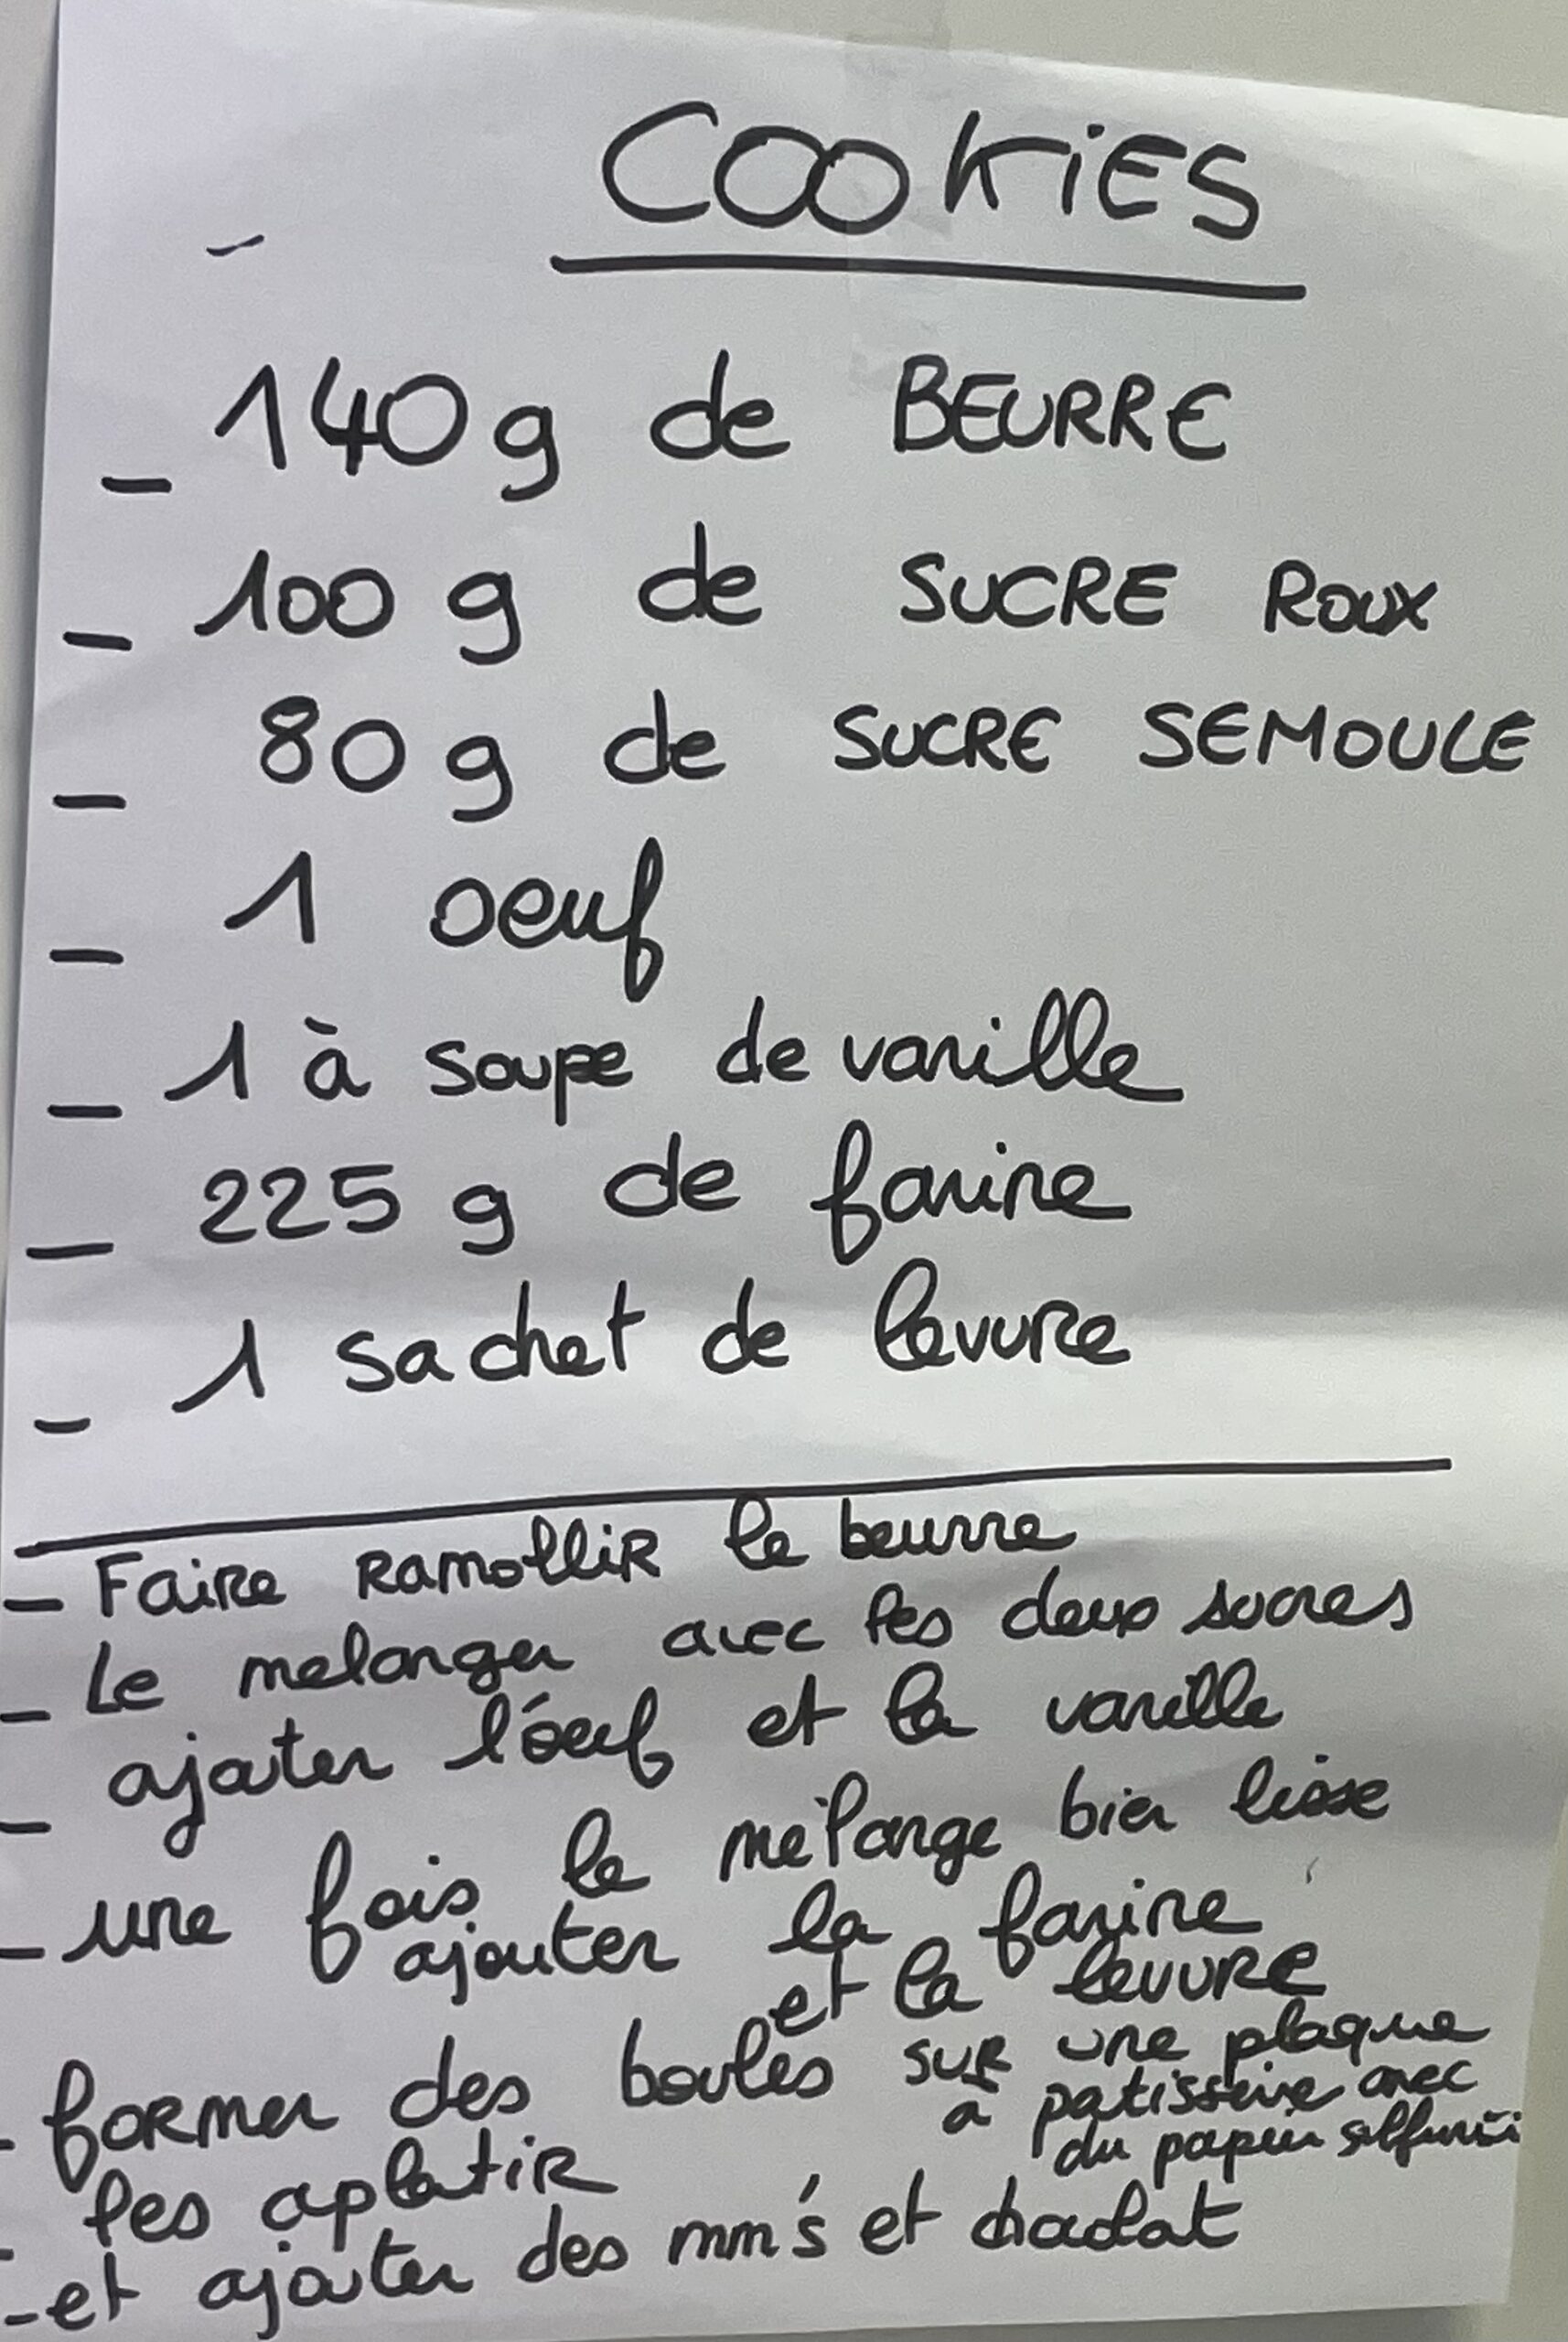 COOKiES
- 140 g de BEURRE
- 100 g de SUCRE ROUX
- 80 g de SUCRE SEMOULE
- 1 oeuf
- 1 à soupe de vanille
- 225 g de farine
- 1 sachet de levure
- Faire Ramollir le beurre
- Le melanger avec les deux sucres
- ajouter l'oeuf et la vanille
- une fois le mélange bien lisse
ajouter la farine
et la levure
- former des boules sur une plaque
a patisserie avec
du papier sulfurisé
- les aplatir
- et ajouter des mm's et chocolat